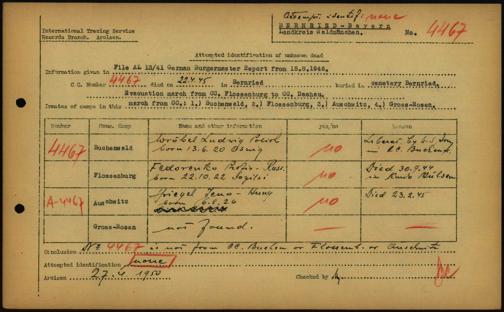 Attempt. identif. none
International Tracing Service
Records Branch. Arolsen.
BERNRIED-Bayern
Landkreis Waldmünchen.
No. 4467
Attempted identification of unknown dead
File AL 13/41 German Burgermaster Report from 15.8.1946.
Information given in
C.C. Number 4467 died on 22.4.45 in Bernried buried in cemetery Bernried,
Evacuation march from CC. Flossenburg to CC. Dachau.
Inmates of camps in this march from CC.: 1.) Buchenwald, 2.) Flossenburg, 3.) Auschwitz, 4.) Gross-Rosen.
Number Conc. Camp Name and other information yes/no
4467 Buchenwald Wróbel Ludwig Polish no Liberat. by U.S. Army
born 13.6.20 in CC. Buchenw.
Flossenburg Fedorenko Russ. no Died 30.9.44
born 22.10.22
A-4467 Auschwitz Spiegel Jenö - Hung no Died 23.2.45
born 6.6.26
Gross-Rosen not found. — —
Conclusion No 4467 is not from CC. Buchenw or Flossenb. or Auschwitz
Attempted identification none
Arolsen 27.4.1950 Checked by